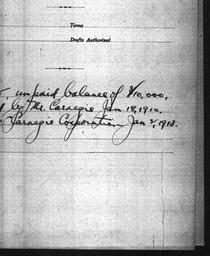 Terms
Drafts Authorized
unpaid balance of $10,000,
by Mr. Carnegie Jan 18, 1910.
Carnegie Corporation Jan 2, 1913.